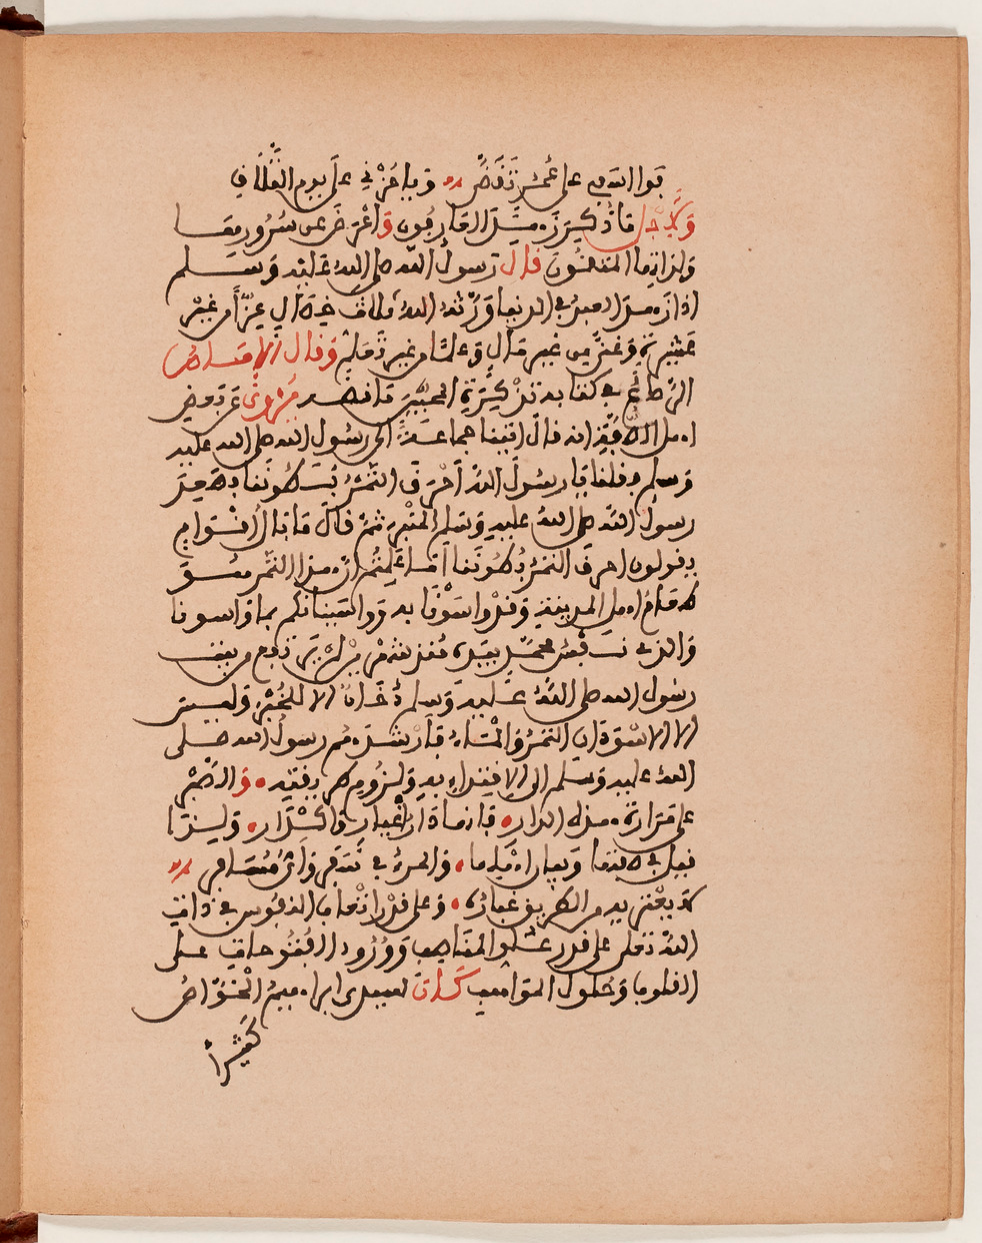 فوا أسفي على عمر تقضى ويا حزني على يوم التلاقي
ولأجل ما ذكر زهد العارفون وأعرض عن سرورها
ولذاتها المتقون قال رسول الله صلى الله عليه وسلم
إذا زهد العبد في الدنيا ورثه الله ثلاث خصال عزا من غير
عشيرة وغنى من غير مال وعلما من غير تعلم وقال الإمام
الرصاع في كتابه تذكرة المحبين ما نصه مروي عن بعض
أهل الصفة أنه قال أتينا جماعة إلى رسول الله صلى الله عليه
وسلم فقلنا يا رسول الله أحرق التمر بطوننا فصعد
رسول الله صلى الله عليه وسلم المنبر ثم قال ما بال أقوام
يقولون أحرق التمر بطوننا أما علمتم أن هذا التمر هو
طعام أهل المدينة وقد واسونا به وواسيناكم بما واسونا
والذي نفس محمد بيده منذ شهرين لم يرتفع من بيت
رسول الله صلى الله عليه وسلم دخان للخبز وليس
إلا الأسودان التمر والماء فأرشدهم رسول الله صلى
الله عليه وسلم إلى الاقتداء به ولزومهم طريقته والصبر
على مرارة هذه الدار فإنها دار أغيار وأكدار ولذا
قيل في صفتها وبيان أهلها والمرء في سفر وأي مسافر
لم يغبر به من الطريق غباره وعلى قدر إتعاب النفوس في ذات
الله تعالى على قدر علو المناصب وورود الفتوحات على
القلوب وحلول المواهب كان لسيدي إبراهيم الخواص
كثيرا